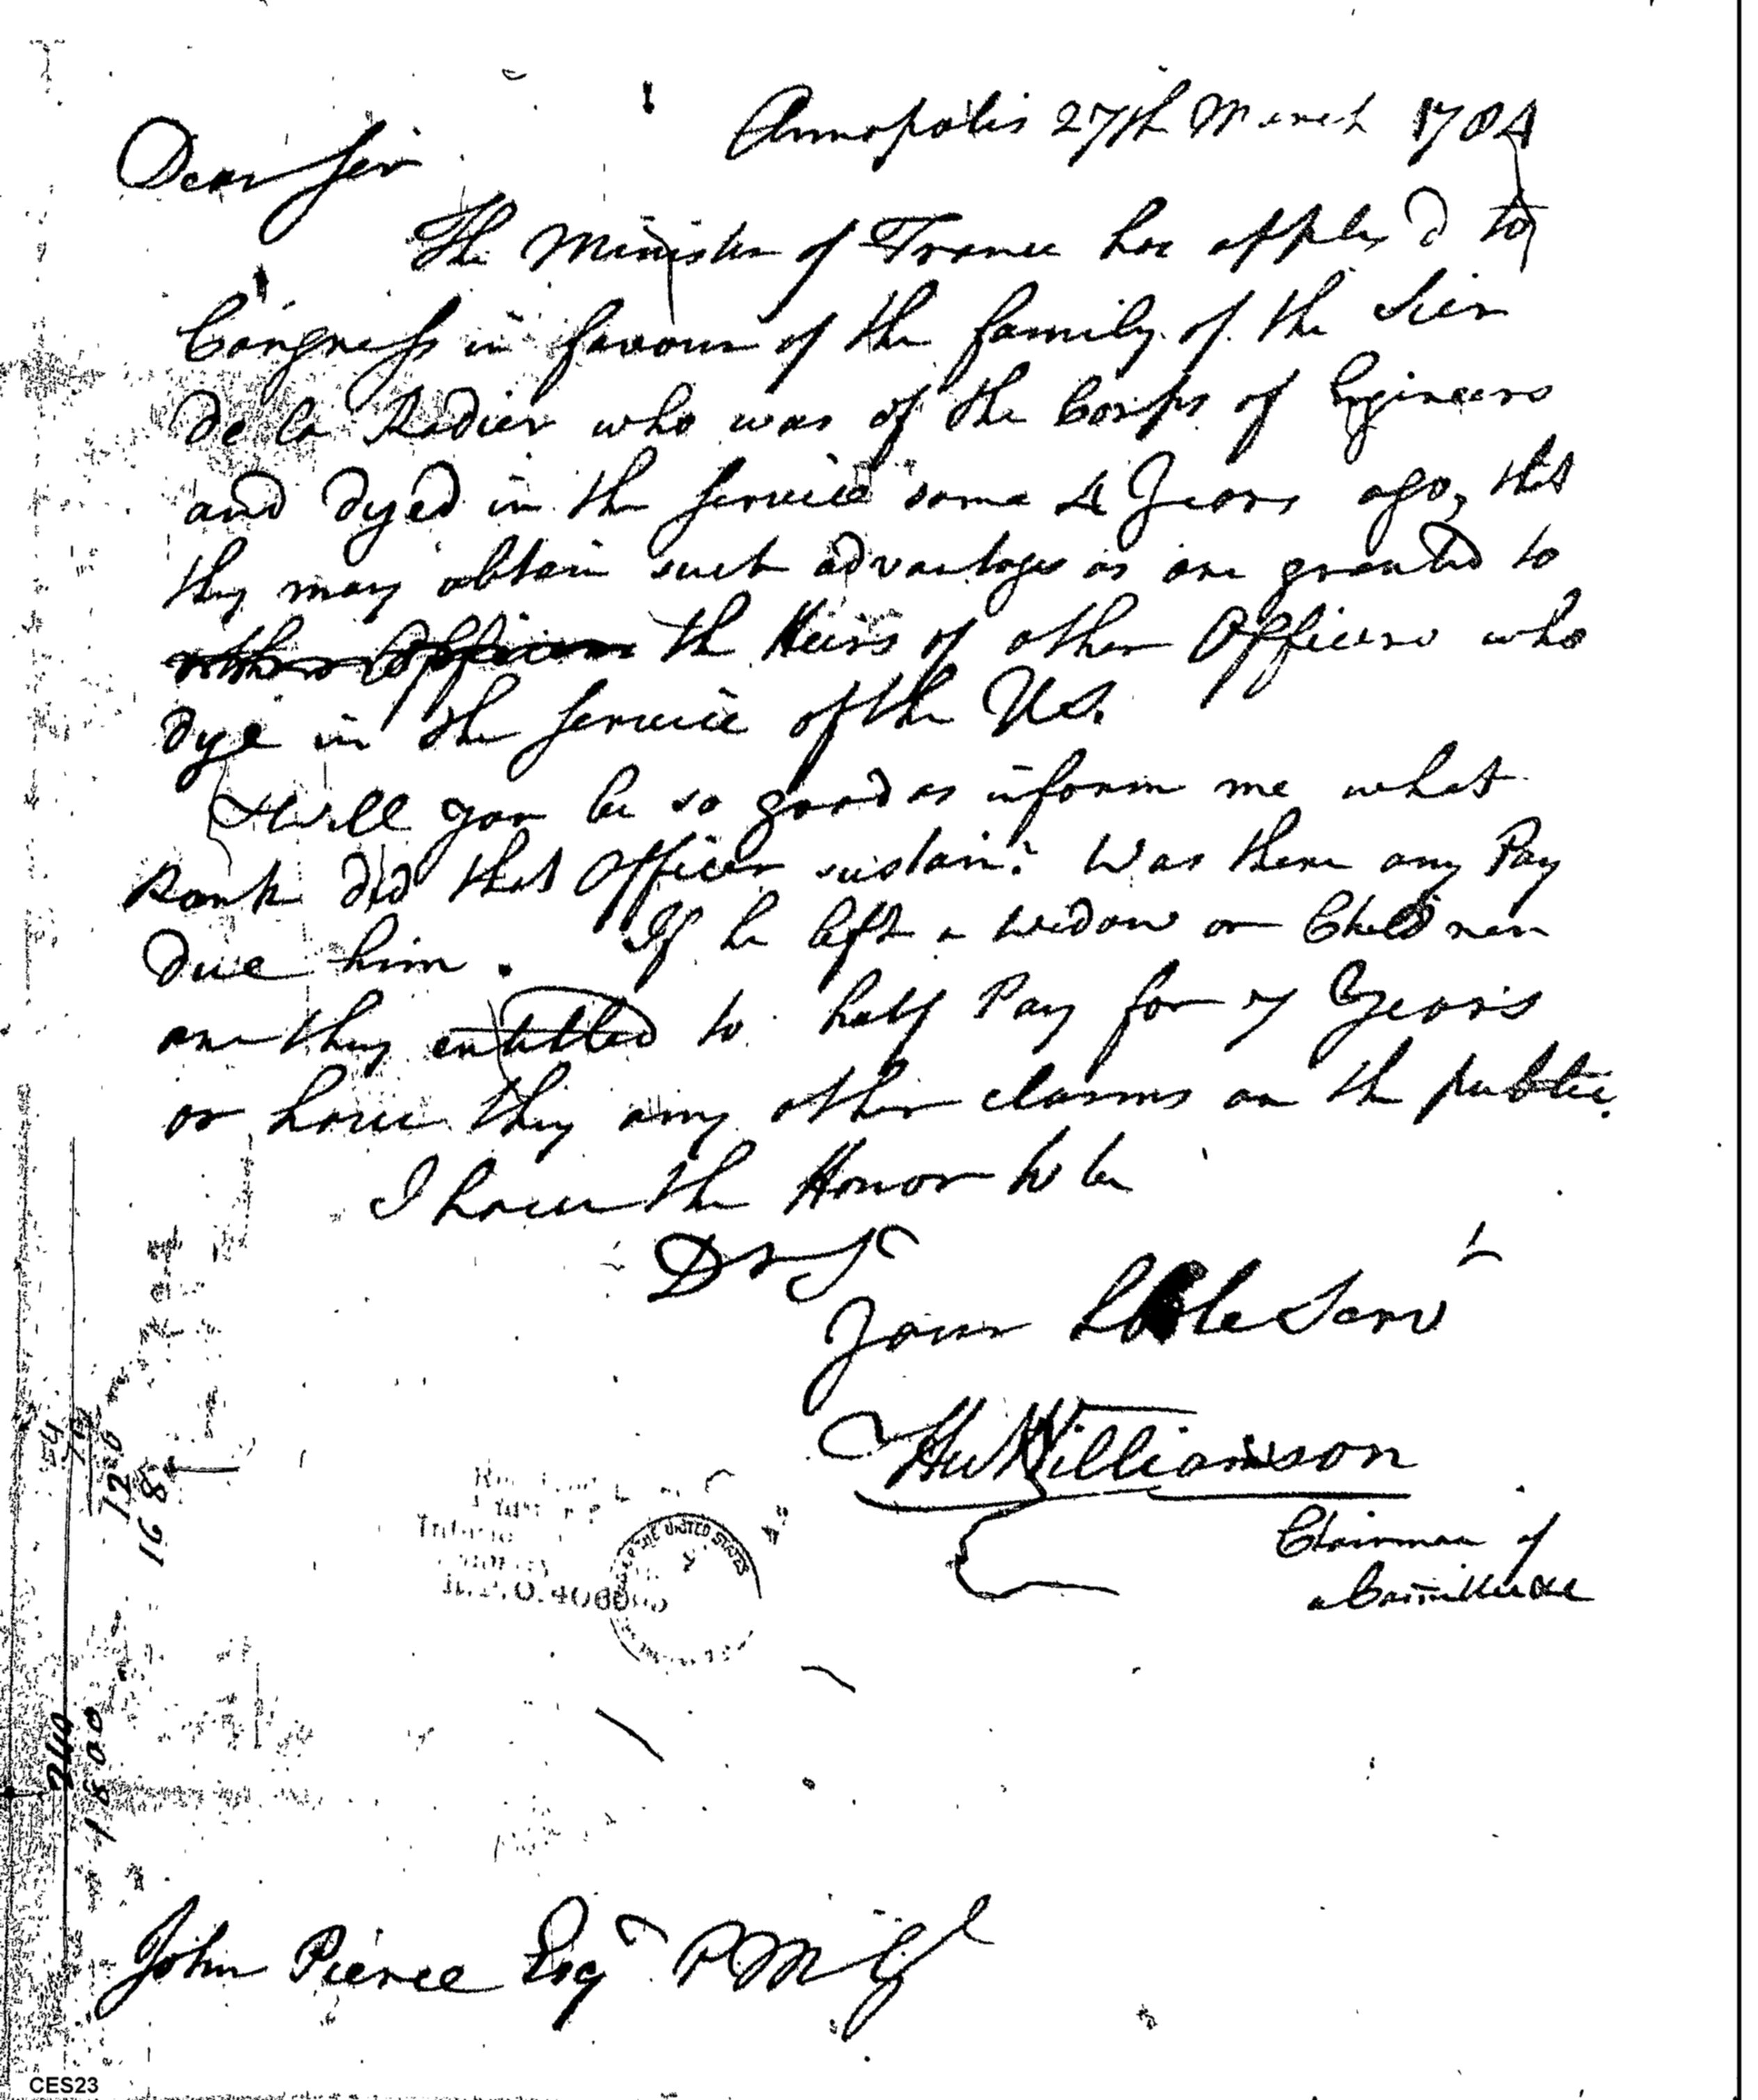 Annapolis 27th March 1784
Dear Sir
The Minister of France has applied to
Congress in favour of the family of the Sier
de la Radier who was of the Corps of Engineers
and dyed in the service some 4 Years ago, that
they may obtain such advantages as are granted to
other Officers the Heirs of other Officers who
dye in the service of the U.S.
Will you be so good as inform me what
Rank did that Officer sustain? Was there any Pay
due him. If he left a widow or Children
are they entitled to half Pay for 7 Years
or have they any other claims on the public.
I have the Honor to be
Dr Sr
Your hble Servt
Hu Williamson
Chairman of
a Committee
54
72
120
168
THE UNITED STATES
240
1800
John Pierce Esqr P M Gl
CES23